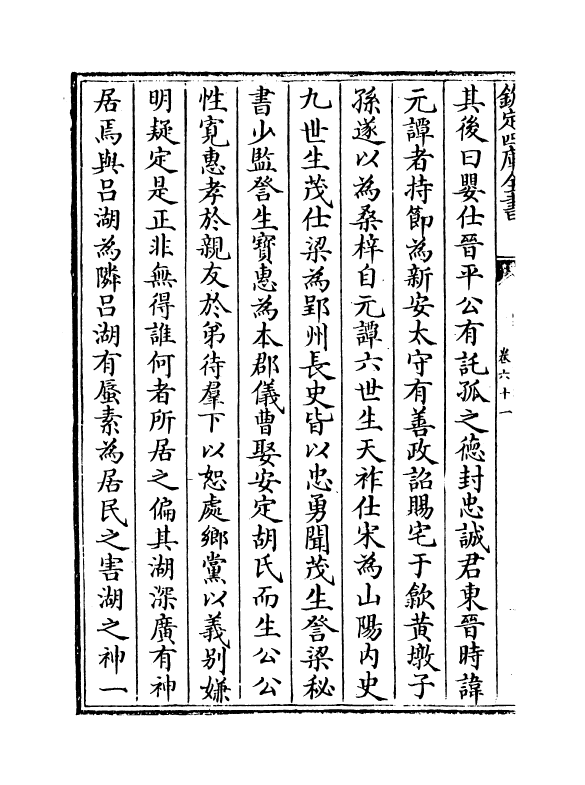 欽定四庫全書
卷六十一
其後曰嬰仕晉平公有託孤之德封忠誠君東晉時諱
元譚者持節為新安太守有善政詔賜宅于歙黃墩子
孫遂以為桑梓自元譚六世生天祚仕宋為山陽内史
九世生茂仕梁為郢州長史皆以忠勇聞茂生詧梁秘
書少監詧生寶惠為本郡儀曹娶安定胡氏而生公公
性寛惠孝於親友於弟待羣下以恕處鄉黨以義别嫌
明疑定是正非無得誰何者所居之偏其湖深廣有神
居焉與吕湖為隣吕湖有蜃素為居民之害湖之神一